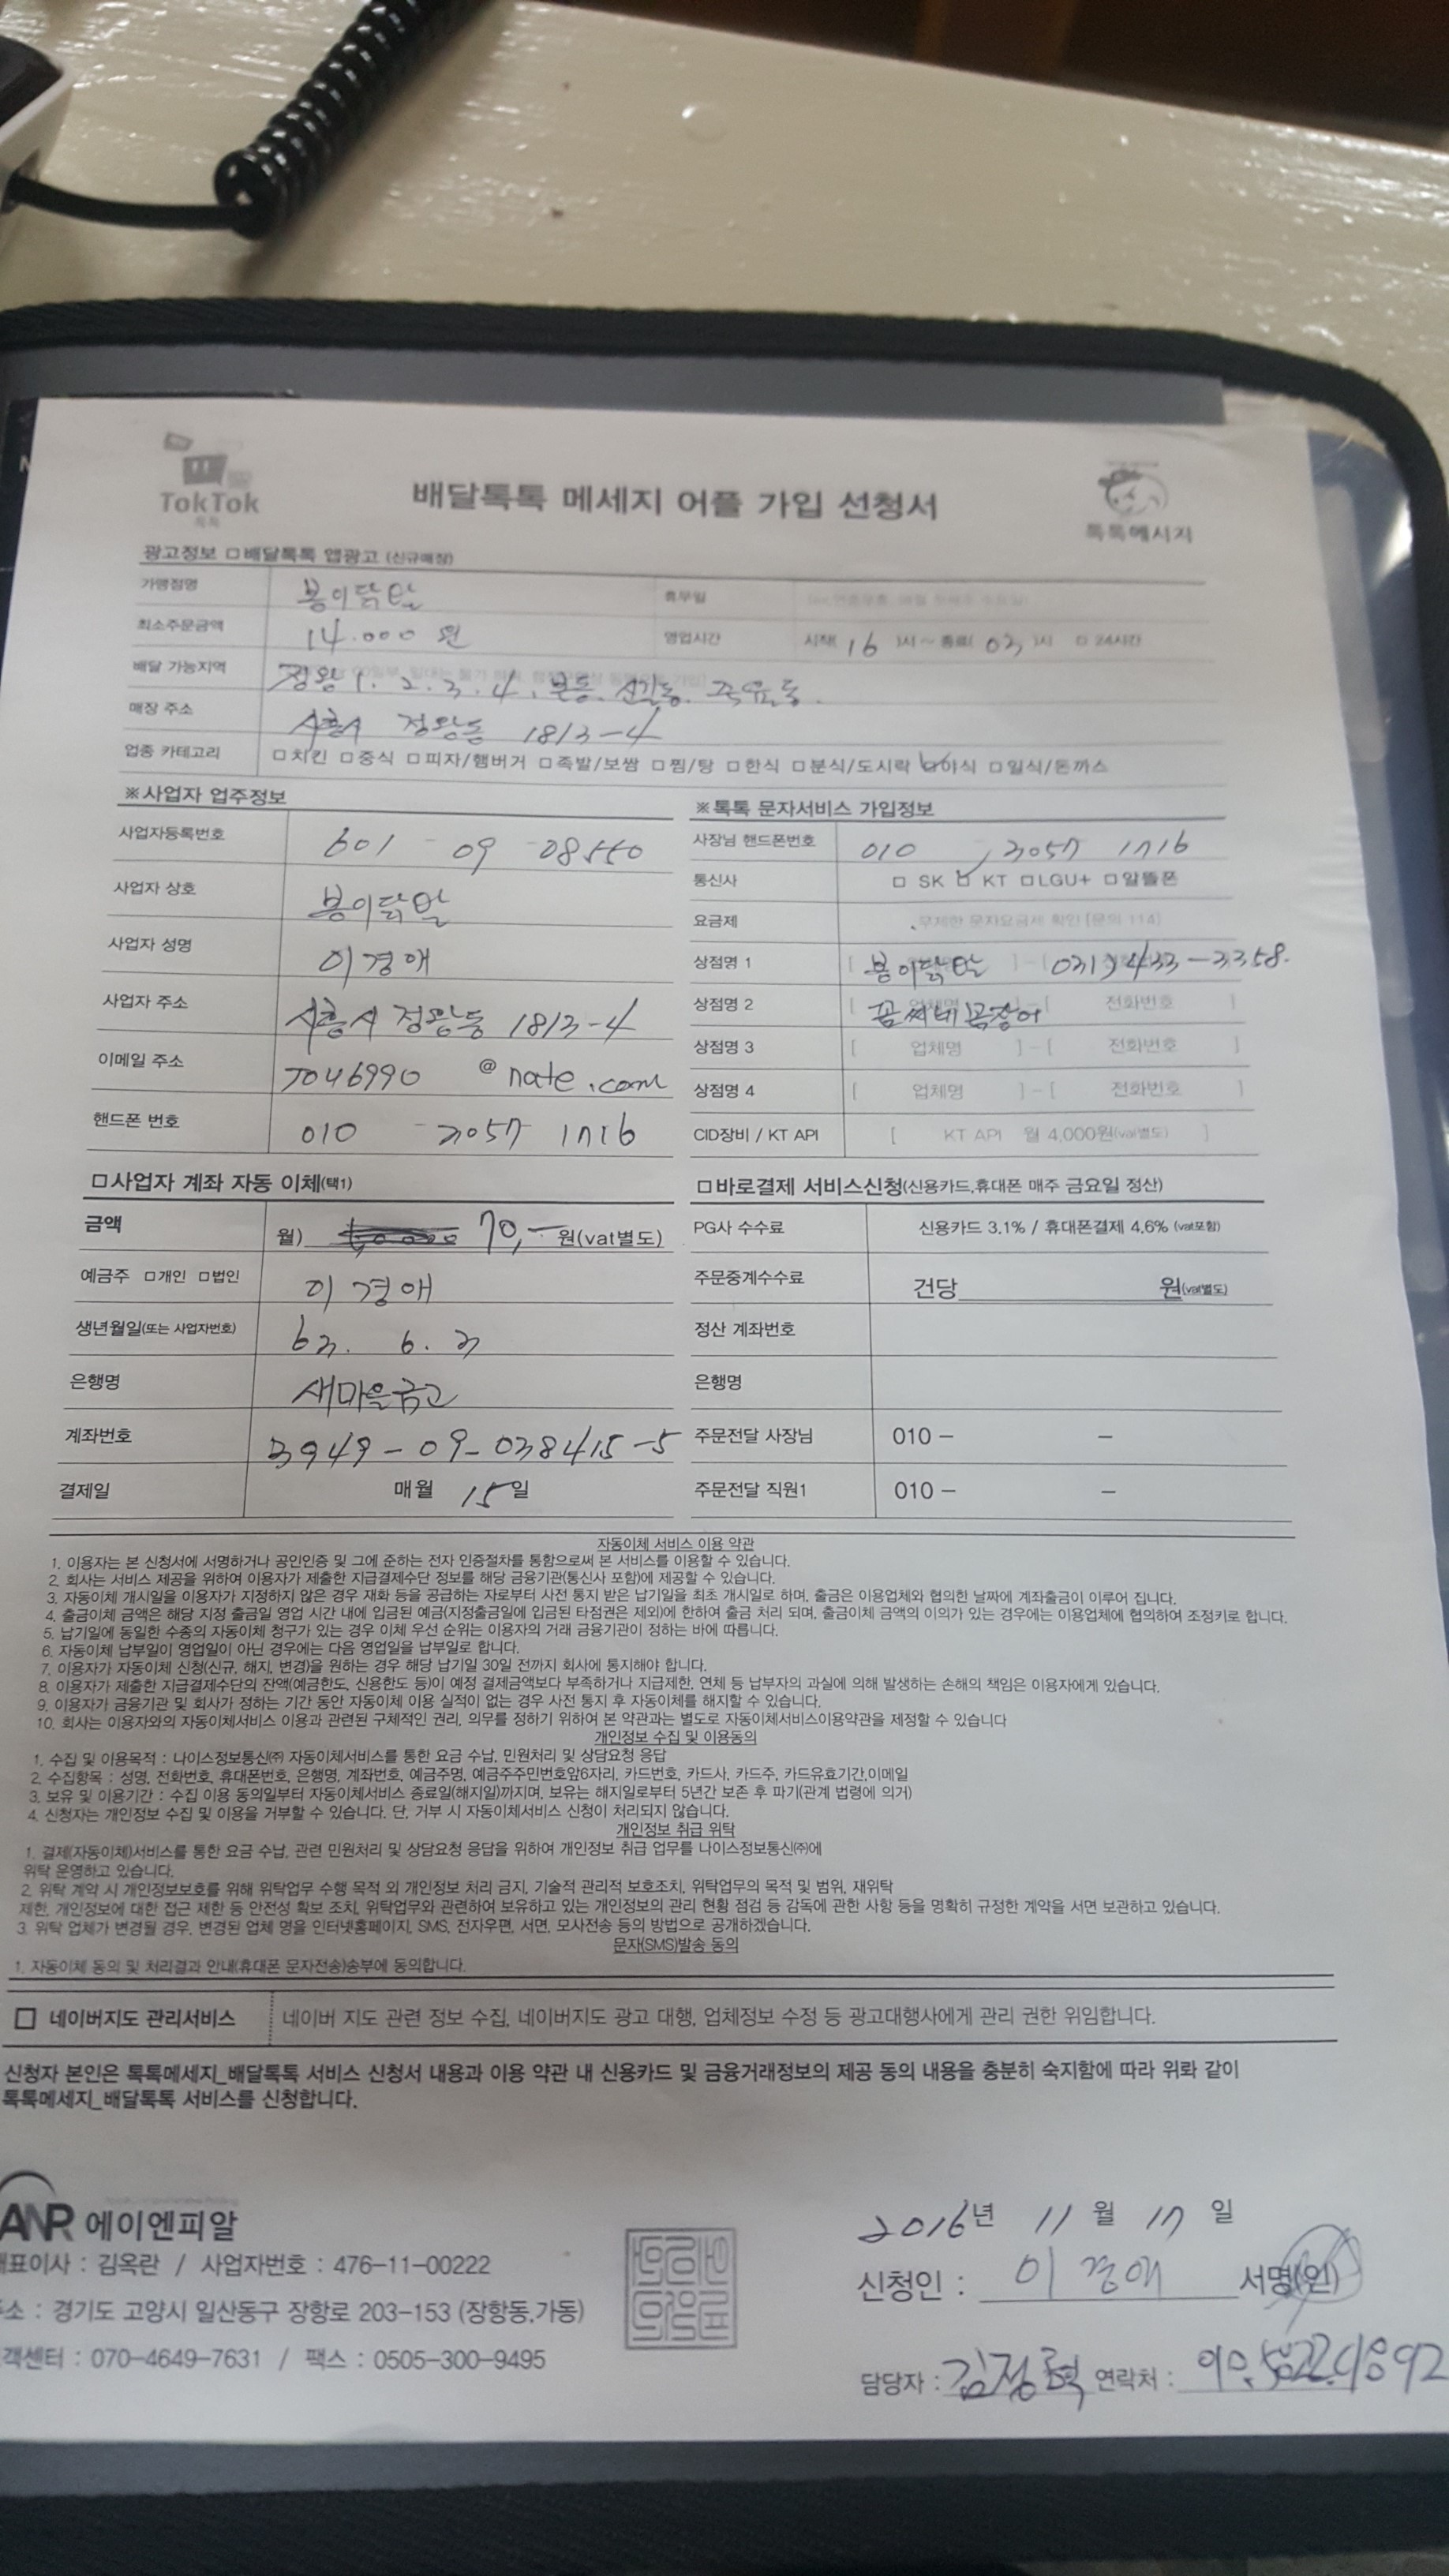 TokTok
톡톡
배달톡톡 메세지 어플 가입 신청서
톡톡메시지
광고정보 □배달톡톡 앱광고 (신규매장)
가맹점명 봉이닭발 휴무일
최소주문금액 14.000 원 영업시간 시작( 16 )시 ~ 종료( 03 )시 □ 24시간
배달 가능지역 정왕 1. 2. 3. 4. 본동.
매장 주소 시흥시 정왕동 1813-4
업종 카테고리 □치킨 □중식 □피자/햄버거 □족발/보쌈 □찜/탕 □한식 □분식/도시락 ☑야식 □일식/돈까스
※사업자 업주정보
사업자등록번호 601 - 09 - 08550
사업자 상호 봉이닭발
사업자 성명 이경애
사업자 주소 시흥시 정왕동 1813-4
이메일 주소 @ nate.com
핸드폰 번호 010 - 3057 1716
※톡톡 문자서비스 가입정보
사장님 핸드폰번호 010 3057 1716
통신사 □ SK ☑ KT □LGU+ □알뜰폰
요금제 무제한 문자요금제 확인 [문의 114]
상점명 1 봉이닭발 031) 433-3358.
상점명 2 꼼씨네꼼장어 전화번호
상점명 3 [ 업체명 ] - [ 전화번호 ]
상점명 4 [ 업체명 ] - [ 전화번호 ]
CID장비 / KT API [ KT API 월 4,000원(vat별도) ]
□사업자 계좌 자동 이체(택1)
금액 월) 70,- 원(vat별도)
예금주 □개인 □법인 이경애
생년월일(또는 사업자번호) 63. 6. 3
은행명 새마을금고
계좌번호 3949-09-038415-5
결제일 매월 15일
□바로결제 서비스신청(신용카드,휴대폰 매주 금요일 정산)
PG사 수수료 신용카드 3.1% / 휴대폰결제 4.6% (vat포함)
주문중계수수료 건당 원(vat별도)
정산 계좌번호
은행명
주문전달 사장님 010 - -
주문전달 직원1 010 - -
자동이체 서비스 이용 약관
1. 이용자는 본 신청서에 서명하거나 공인인증 및 그에 준하는 전자 인증절차를 통함으로써 본 서비스를 이용할 수 있습니다.
2. 회사는 서비스 제공을 위하여 이용자가 제출한 지급결제수단 정보를 해당 금융기관(통신사 포함)에 제공할 수 있습니다.
3. 자동이체 개시일을 이용자가 지정하지 않은 경우 재화 등을 공급하는 자로부터 사전 통지 받은 납기일을 최초 개시일로 하며, 출금은 이용업체와 협의한 날짜에 계좌출금이 이루어 집니다.
4. 출금이체 금액은 해당 지정 출금일 영업 시간 내에 입금된 예금(지정출금일에 입금된 타점권은 제외)에 한하여 출금 처리 되며, 출금이체 금액의 이의가 있는 경우에는 이용업체에 협의하여 조정키로 합니다.
5. 납기일에 동일한 수종의 자동이체 청구가 있는 경우 이체 우선 순위는 이용자의 거래 금융기관이 정하는 바에 따릅니다.
6. 자동이체 납부일이 영업일이 아닌 경우에는 다음 영업일을 납부일로 합니다.
7. 이용자가 자동이체 신청(신규, 해지, 변경)을 원하는 경우 해당 납기일 30일 전까지 회사에 통지해야 합니다.
8. 이용자가 제출한 지급결제수단의 잔액(예금한도, 신용한도 등)이 예정 결제금액보다 부족하거나 지급제한, 연체 등 납부자의 과실에 의해 발생하는 손해의 책임은 이용자에게 있습니다.
9. 이용자가 금융기관 및 회사가 정하는 기간 동안 자동이체 이용 실적이 없는 경우 사전 통지 후 자동이체를 해지할 수 있습니다.
10. 회사는 이용자와의 자동이체서비스 이용과 관련된 구체적인 권리, 의무를 정하기 위하여 본 약관과는 별도로 자동이체서비스이용약관을 제정할 수 있습니다
개인정보 수집 및 이용동의
1. 수집 및 이용목적 : 나이스정보통신㈜ 자동이체서비스를 통한 요금 수납, 민원처리 및 상담요청 응답
2. 수집항목 : 성명, 전화번호, 휴대폰번호, 은행명, 계좌번호, 예금주명, 예금주주민번호앞6자리, 카드번호, 카드사, 카드주, 카드유효기간,이메일
3. 보유 및 이용기간 : 수집 이용 동의일부터 자동이체서비스 종료일(해지일)까지며, 보유는 해지일로부터 5년간 보존 후 파기(관계 법령에 의거)
4. 신청자는 개인정보 수집 및 이용을 거부할 수 있습니다. 단, 거부 시 자동이체서비스 신청이 처리되지 않습니다.
개인정보 취급 위탁
1. 결제(자동이체)서비스를 통한 요금 수납, 관련 민원처리 및 상담요청 응답을 위하여 개인정보 취급 업무를 나이스정보통신㈜에
위탁 운영하고 있습니다.
2. 위탁 계약 시 개인정보보호를 위해 위탁업무 수행 목적 외 개인정보 처리 금지, 기술적 관리적 보호조치, 위탁업무의 목적 및 범위, 재위탁
제한, 개인정보에 대한 접근 제한 등 안전성 확보 조치, 위탁업무와 관련하여 보유하고 있는 개인정보의 관리 현황 점검 등 감독에 관한 사항 등을 명확히 규정한 계약을 서면 보관하고 있습니다.
3. 위탁 업체가 변경될 경우, 변경된 업체 명을 인터넷홈페이지, SMS, 전자우편, 서면, 모사전송 등의 방법으로 공개하겠습니다.
문자(SMS)발송 동의
1. 자동이체 동의 및 처리결과 안내(휴대폰 문자전송)송부에 동의합니다.
□ 네이버지도 관리서비스 네이버 지도 관련 정보 수집, 네이버지도 광고 대행, 업체정보 수정 등 광고대행사에게 관리 권한 위임합니다.
신청자 본인은 톡톡메세지_배달톡톡 서비스 신청서 내용과 이용 약관 내 신용카드 및 금융거래정보의 제공 동의 내용을 충분히 숙지함에 따라 위와 같이
톡톡메세지_배달톡톡 서비스를 신청합니다.
ANR 에이엔피알
대표이사 : 김옥란 / 사업자번호 : 476-11-00222
주소 : 경기도 고양시 일산동구 장항로 203-153 (장항동,가동)
고객센터 : 070-4649-7631 / 팩스 : 0505-300-9495
2016년 11월 17일
신청인 : 이경애 서명(인)
담당자 : 김정혁 연락처 :